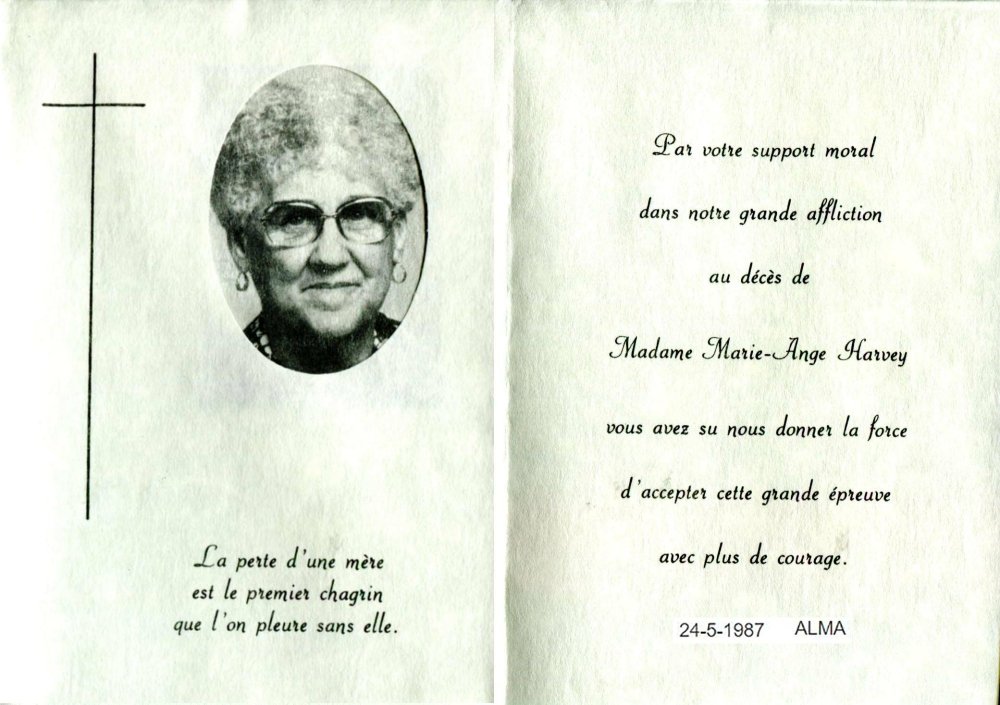 La perte d'une mère
est le premier chagrin
que l'on pleure sans elle.
Par votre support moral
dans notre grande affliction
au décès de
Madame Marie-Ange Harvey
vous avez su nous donner la force
d'accepter cette grande épreuve
avec plus de courage.
24-5-1987 ALMA